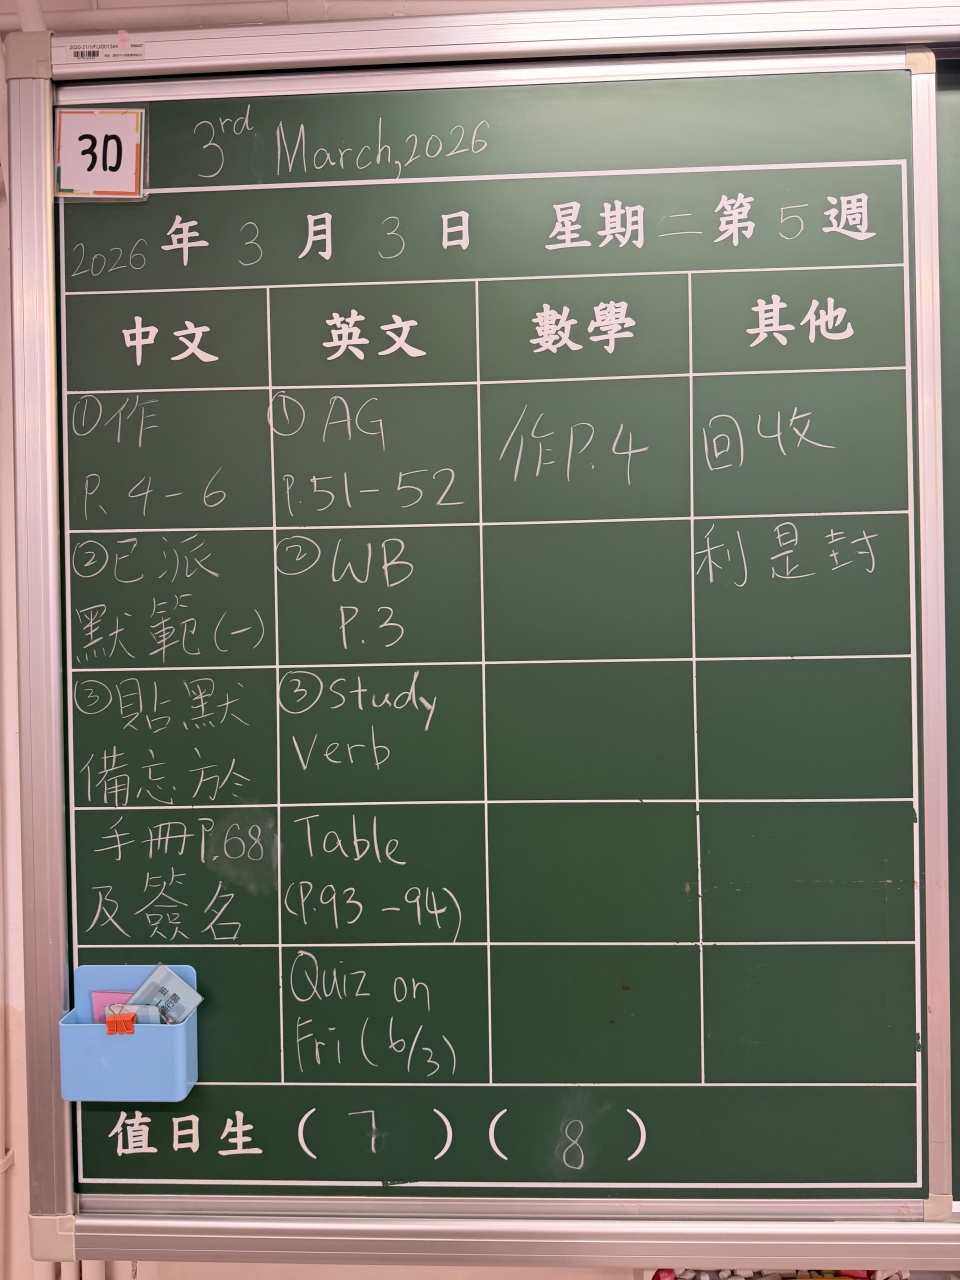 2020-21/1/FU/001344
3D
3rd March, 2026
2026年3月3日 星期二第5週
中文 英文 數學 其他
①作
P. 4-6
②已派
默範(一)
③貼默
備忘於
手冊P.68
及簽名
① AG
P.51-52
② WB
P.3
③ Study
Verb
Table
(P.93-94)
Quiz on
Fri (6/3)
作P.4
回收
利是封
值日生 ( 7 ) ( 8 )